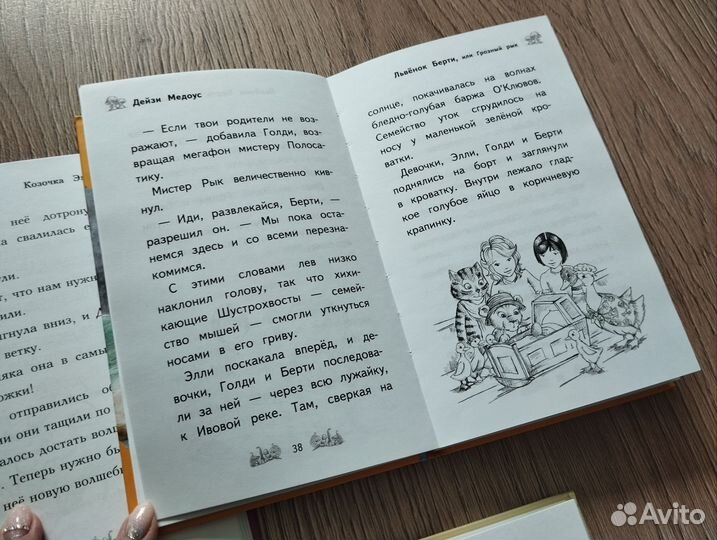 Козочка Эл
неё дотрону
а свалилась е
ли.
т, что нам нужн
или.
гнула вниз, и Д
ветку.
яка она в самы
ожки!
отправились об
ми они тащили по
алось достать вол
. Теперь нужно бы
неё новую волшебн
Дейзи Медоус
— Если твои родители не воз-
ражают, — добавила Голди, воз-
вращая мегафон мистеру Полоса-
тику.
Мистер Рык величественно кив-
нул.
— Иди, развлекайся, Берти, —
разрешил он. — Мы пока оста-
немся здесь и со всеми перезна-
комимся.
С этими словами лев низко
наклонил голову, так что хихи-
кающие Шустрохвосты — семей-
ство мышей — смогли уткнуться
носами в его гриву.
Элли поскакала вперёд, и де-
вочки, Голди и Берти последова-
ли за ней — через всю лужайку,
к Ивовой реке. Там, сверкая на
38
Львёнок Берти, или Грозный рык
солнце, покачивалась на волнах
бледно-голубая баржа О'Клювов.
Семейство уток сгрудилось на
носу у маленькой зелёной кро-
ватки.
Девочки, Элли, Голди и Берти
поднялись на борт и заглянули
в кроватку. Внутри лежало глад-
кое голубое яйцо в коричневую
крапинку.
Avito